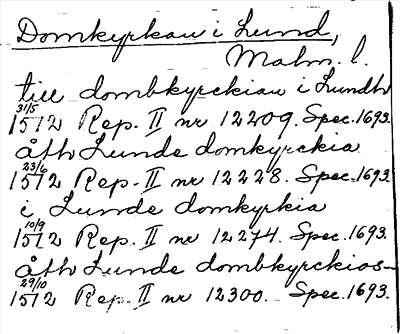 Domkyrkan i Lund,
Malm. l.
till dombkyrckian i Lundh
31/5 1512 Rep. II nr 12209. Spec. 1693.
åth Lunde domkyrckia
23/6 1512 Rep. II nr 12228. Spec. 1693.
i Lunde domkyrkia
10/9 1512 Rep. II nr 12274. Spec. 1693.
åth Lunde dombkyrckios-
29/10 1512 Rep. II nr 12300. Spec. 1693.